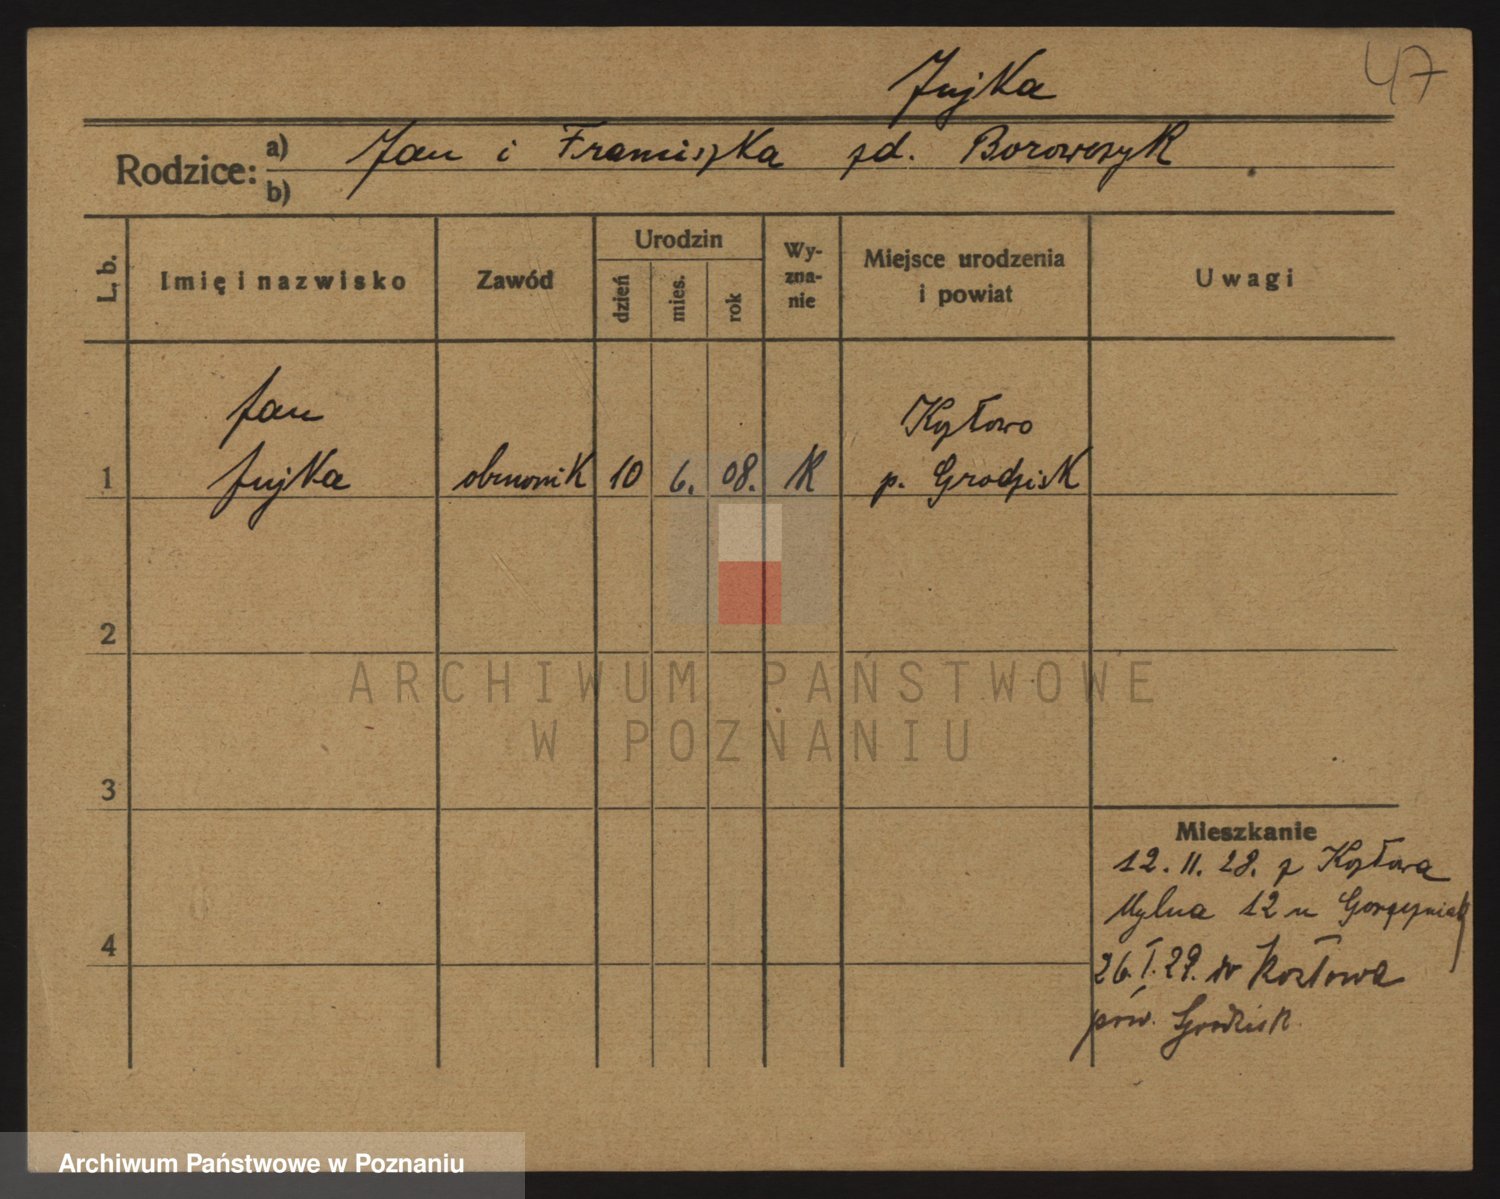 47
Jujka
Rodzice: a) Jan i Franciszka zd. Borowczyk
b)
L. b. Imię i nazwisko Zawód Urodzin dzień mies. rok Wy-zna-nie Miejsce urodzenia i powiat Uwagi
Jan Kozłowo
1 Jujka 10 6. 08. K p. Grodzisk
2
ARCHIWUM PAŃSTWOWE
W POZNANIU
3
Mieszkanie
12. 11. 28. z Kozłowa
Mylna 12 u Gorzyniak
4
26. I. 29. w Kozłowa
pow. Grodzisk.
Archiwum Państwowe w Poznaniu